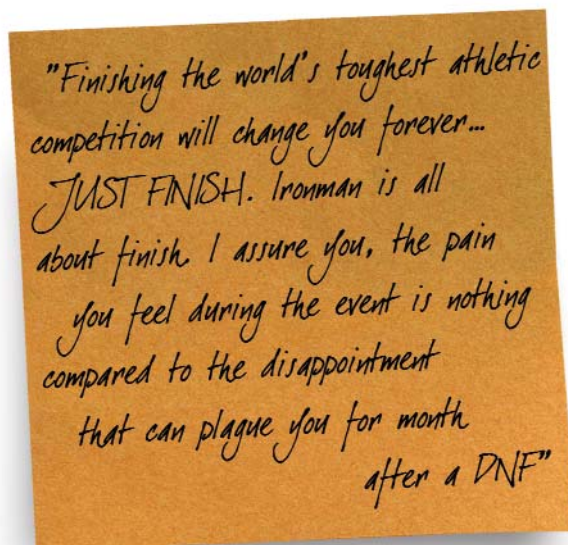 "Finishing the world's toughest athletic
competition will change you forever...
JUST FINISH. Ironman is all
about finish. I assure you, the pain
you feel during the event is nothing
compared to the disappointment
that can plague you for month
after a DNF"